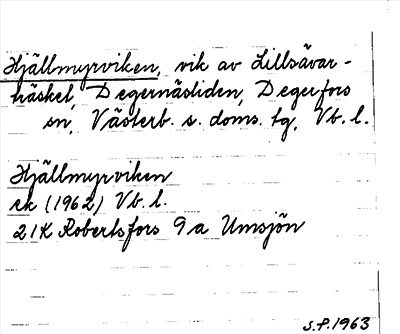 Hjällmyrviken, vik av Lillsävar-
träsket, Degernäsliden, Degerfors
sn, Västerb. s. doms. tg, Vb. l.
Hjällmyrviken
ek (1962) Vb. l.
21K Robertsfors 9a Umsjön
S.P. 1963